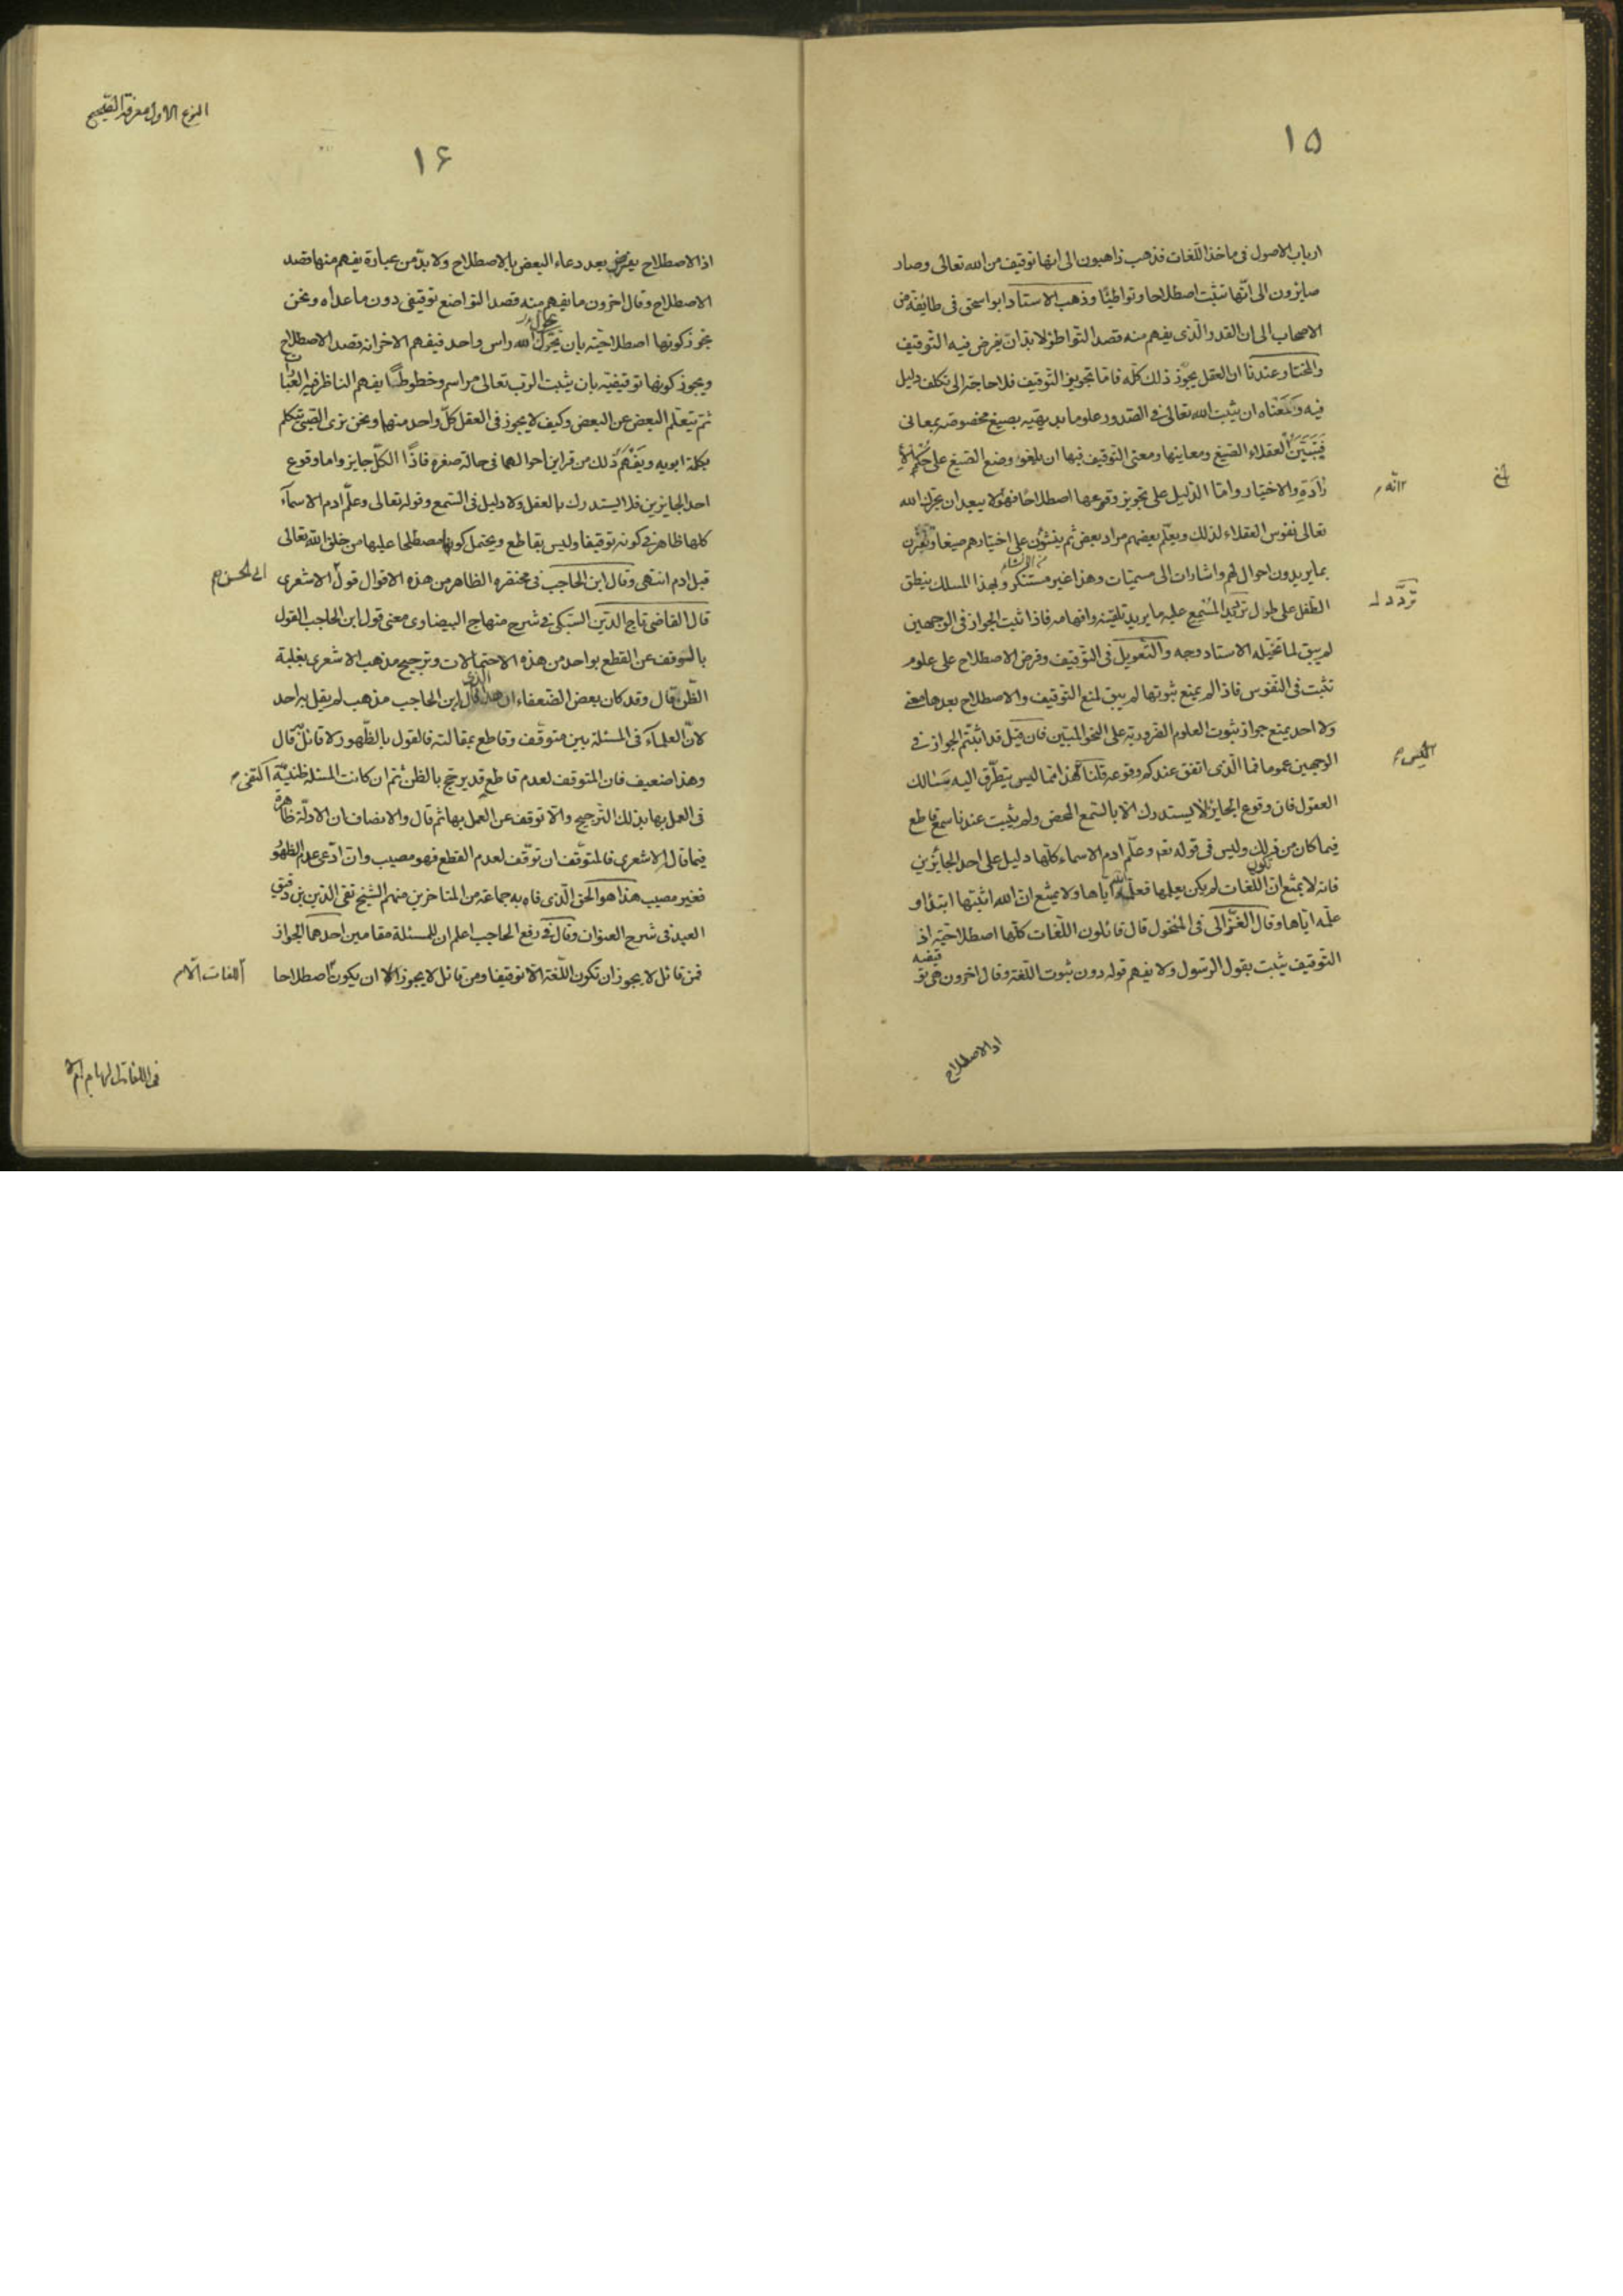 ١٥
ارباب الاصول فى ماخذ اللّغات فذهب ذاهبون الى انها توقيف من الله تعالى وصار
صايرون الى انّها تثبّت اصطلاحا وتواطيًا وذهب الاستاد ابو اسحق فى طائفة من
الاصحاب الى ان القدر والّذى يفهم منه قصد التّواطؤ لا بدّ ان يفرض فيه التّوقيف
والمختار عندنا ان العقل يجوّز ذلك كلّه فامّا تجويز التّوقيف فلا حاجة الى تكلف دليل
فيه ومعناه ان يثبت الله تعالى فى الصّدور علوما بديهيّه بصيغ مخصوصه بمعانى
فيتبيّن العقلاء الصّيغ ومعاينها ومعنى التّوقيف فيها ان يلقوا وضع الصّيغ على حكم الا
رادَةِ والاختيار وامّا الدّليل على تجويز وقوعها اصطلاحًا فهو لا يبعد ان يحرّك الله
رانّه م
تعالى نفوس العقلاء لذلك ويعلم بعضهم مراد بعض ثم ينشؤن على اختيارهم صيغا وتقترن
بما يريدون احوال لهم واشارات الى مسمّيات وهذا غير مستنكر وبهذا المسلك ينطق
الطّفل على طول المُسْمِع عليه ما يريد تلقينه وافهامه فاذا ثبت الجواز فى الوجهين
تَرَدّد
لم يبق لما تخيّله الاستاد وجه والتّعويل فى التّوقيف وفرض الاصطلاح على علوم
تثبت فى النّفوس فاذا لم يمنع ثبوتها لم يبق لمنع التّوقيف والاصطلاح بعدها معنى
ولا احد يمنع جواز ثبوت العلوم الضّروريّة على النحو المبيّن فان قيل قد اثبتّم الجواز فى
الوجهين عموما فما الّذى اتفق عندكم وقوعه قلنا هذا مما ليس يتطرّق اليه بمسالك
العقول فان وقوع الجايز لا يستدرك الا بالسّمع المحض ولم يثبت عندنا سمع قاطع
فيما كان من ذلك وليس فى قوله تعه وعلّم ادم الاسماء كلّها دليل على احد الجائزين
فانه لا يمتنع انّ تكون اللّغات لم يكن يعلمها فعلّمه الله ايّاها ولا يمتنع انّ الله اثبتها ابتداء و
علّمه ايّاها وقال الغزّالى فى المنخول قال قائلون اللّغات كلّها اصطلاحيّه اذ
التّوقيف يثبت بقول الرّسول ولا يفهم قوله دون ثبوت اللّغة وقال اخرون هى تو
قيفيه
اذ الاصطلاح
النوع الاول معرفة الصّحيح
١۶
اذ الاصطلاح يفرض بعد دعاء البعض بالاصطلاح ولا بدّ من عبارة يفهم منها قصد
الاصطلاح وقال اخرون ما يفهم منه قصد التواضع توقيفى دون ما عداه ونحن
نجوّز كونها اصطلاحيّة بان يحرّك الله راس واحد فيفهم الاخر انه قصد الاصطلاح
ويجوز كونها توقيفيّة بان يثبت الرّب تعالى مراسم وخطوطًا يفهم الناظر فيها العبا
ثم يتعلّم البعض عن البعض وكيف لا يجوز فى العقل كلّ واحد منهما ونحن نرى الصّبى يتكلم
بكلمة ابويه ويفهم ذلك من قراين احوالهما فى حالة صغره فاذًا الكلّ جايز واما وقوع
احد الجايزين فلا يستدرك بالعقل ولا دليل فى السّمع وقوله تعالى وعلّم ادم الاسمآء
كلها ظاهر فى كونه توقيفا وليس بقاطع ويحتمل كونها مصطلحا عليها من خلق الله تعالى
قبل ادم انتهى وقال ابن الحاجب فى مختصره الظاهر من هذه الاقوال قول الاشعرى
ابى الحسن م
قال القاضى تاج الدّين السّبكى فى شرح منهاج البيضاوى معنى قول ابن الحاجب القول
بالتّوقف عن القطع بواحد من هذه الاحتمالات وترجيح مذهب الاشعرى بغلبة
الظّن قال وقد كان بعض الضّعفاء ان هذا الّذى قال ابن الحاجب مذهب لم يقل به احد
لانّ العلمآء فى المسئلة بين متوقّف وقاطع بمقالته فالقول بالظّهور لا قائل به قال
وهذا ضعيف فان المتوقف لعدم قاطع قد يرجّح بالظنّ ثم ان كانت المسئلة ظنيّة
اكتفى م
فى العمل بها بذلك التّرجيح والّا توقف عن العمل بها ثم قال والانصاف ان الادلّة ظاهرة
فيما قاله الاشعرى فالمتوقّف ان توقّف لعدم القطع فهو مصيب وان ادّعى عدم الظهو
فغير مصيب هذا هو الحق الّذى فاه به جماعة من المتاخرين منهم الشّيخ تقى الدّين بن دقيق
العيد فى شرح العنوان وقال فى رفع الحاجب اعلم ان للمسئلة مقامين احدهما الجواز
فمن قائل لا يجوز ان تكون اللّغة الّا توقيفا ومن قائل لا يجوز الا ان يكون اصطلاحا